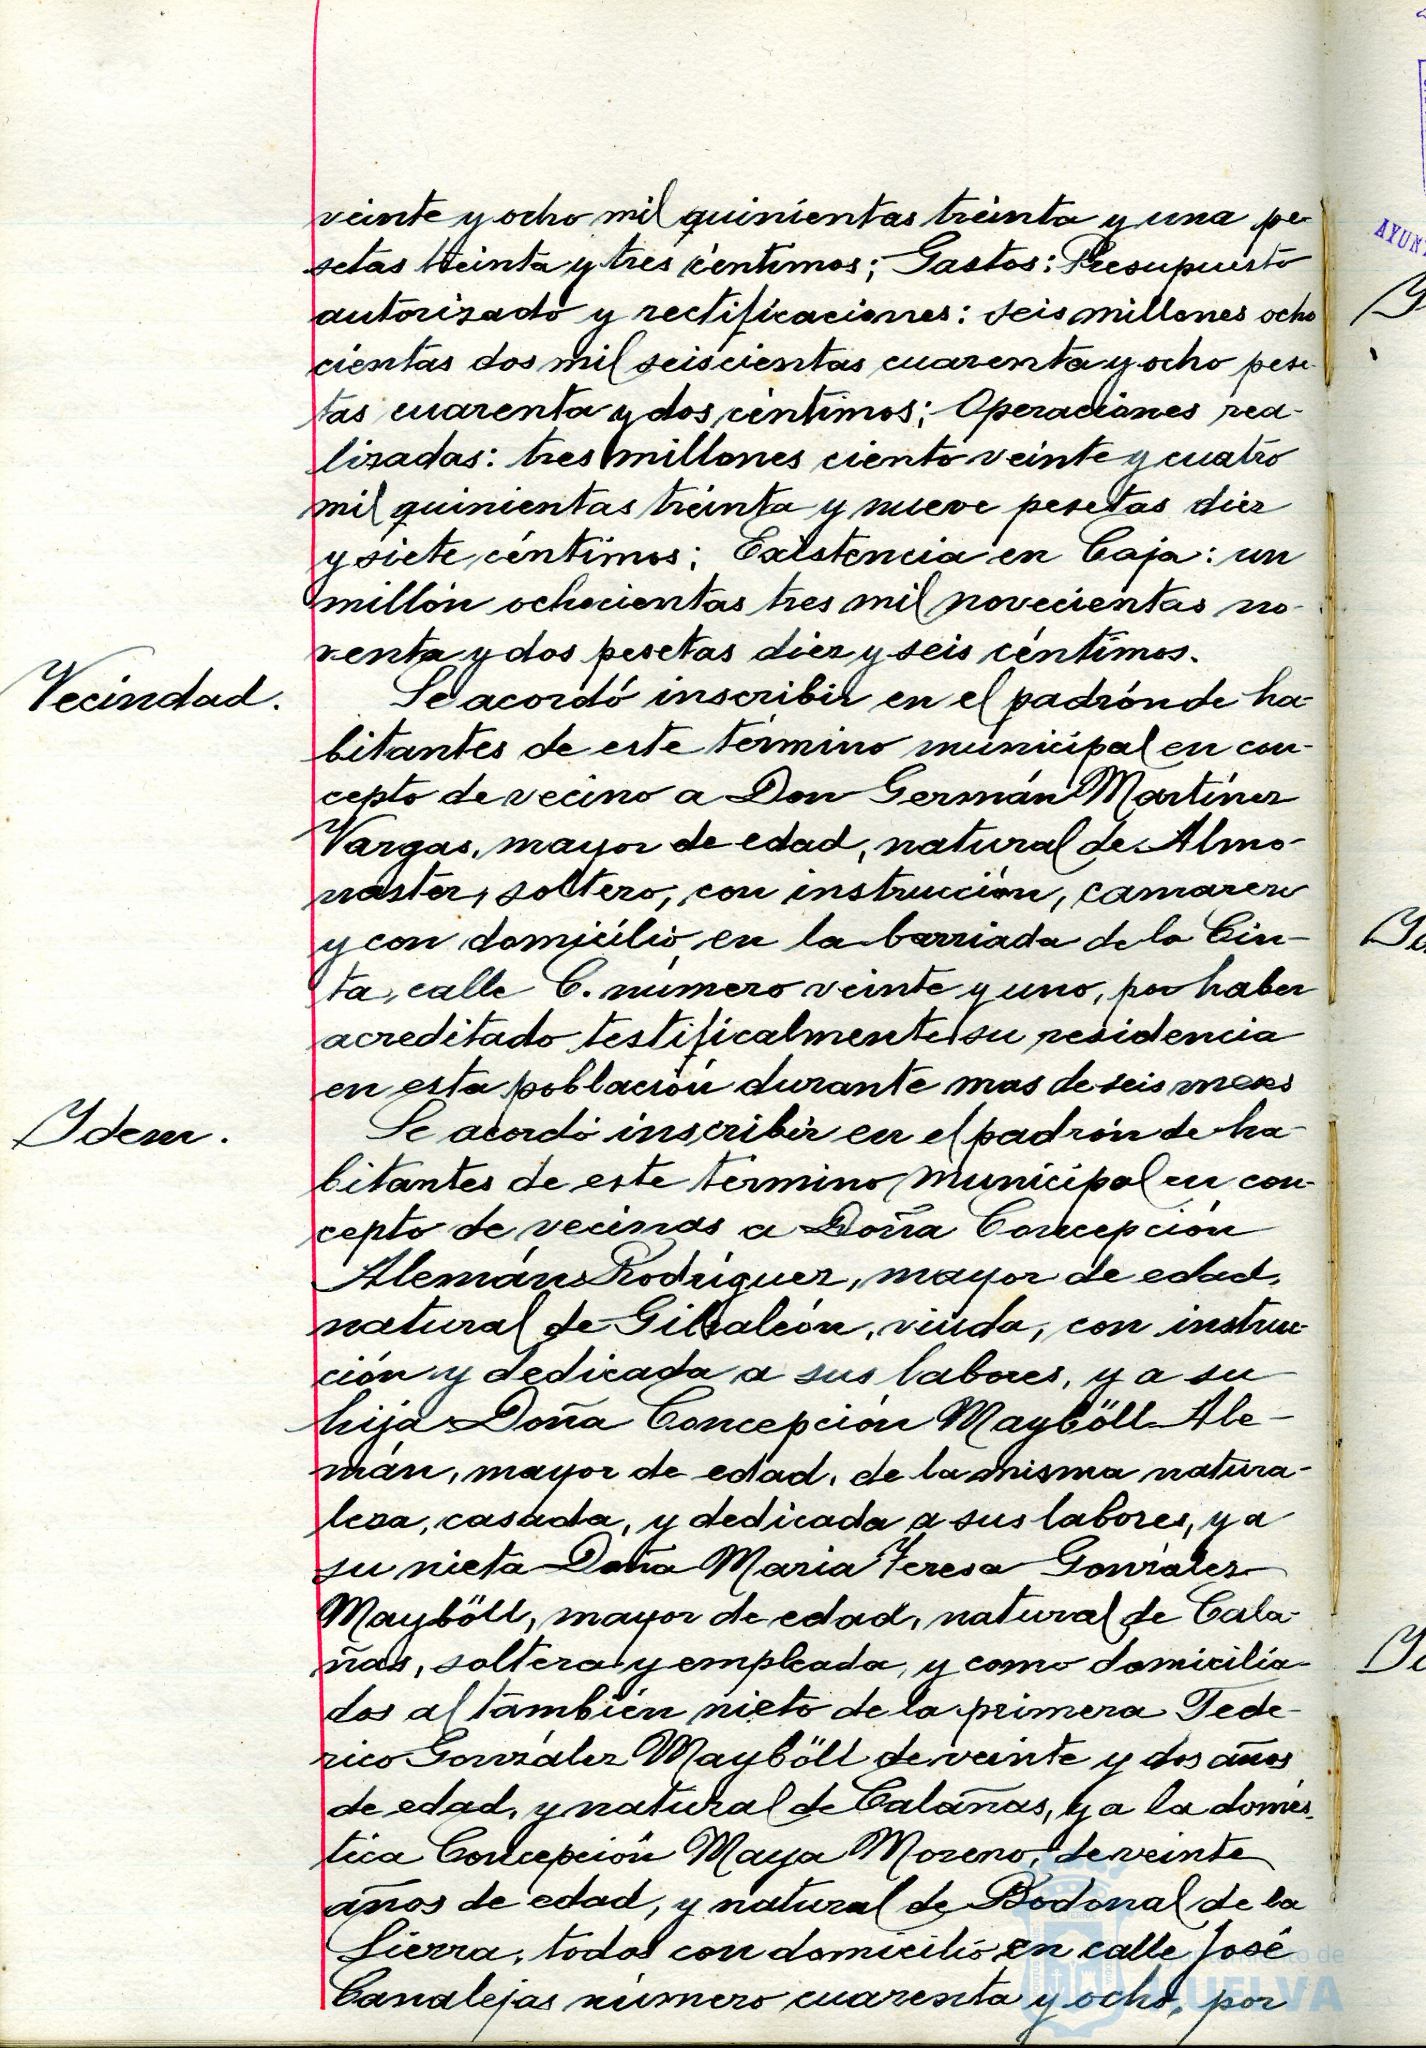 veinte y ocho mil quinientas treinta y una pe-
setas treinta y tres céntimos; Gastos: Presupuesto
autorizado y rectificaciones: seis millones ocho
cientas dos mil seiscientas cuarenta y ocho pese-
tas cuarenta y dos céntimos; Operaciones rea-
lizadas: tres millones ciento veinte y cuatro
mil quinientas treinta y nueve pesetas diez
y siete céntimos; Existencia en Caja: un
millón ochocientas tres mil novecientas no-
venta y dos pesetas diez y seis céntimos.
Vecindad.
Se acordó inscribir en el padrón de ha-
bitantes de este término municipal en con-
cepto de vecino a Don Germán Martínez
Vargas, mayor de edad, natural de Almo-
naster, soltero, con instrucción, camarero
y con domicilio en la barriada de la Cin-
ta, calle C. número veinte y uno, por haber
acreditado testificalmente su residencia
en esta población durante mas de seis meses
Idem.
Se acordó inscribir en el padrón de ha-
bitantes de este término municipal en con-
cepto de vecinas a Doña Concepción
Alemán Rodríguez, mayor de edad,
natural de Gibraleón, viuda, con instruc-
ción y dedicada a sus labores, y a su
hija Doña Concepción Mayböll Ale-
mán, mayor de edad, de la misma natura-
leza, casada, y dedicada a sus labores, y a
su nieta Doña María Teresa González
Mayböll, mayor de edad, natural de Cala-
ñas, soltera y empleada, y como domicilia-
dos al también nieto de la primera Fede-
rico González Mayböll de veinte y dos años
de edad, y natural de Calañas, y a la domés-
tica Concepción Maya Moreno, de veinte
años de edad, y natural de Bodonal de la
Sierra, todos con domicilio en calle José
Canalejas número cuarenta y ocho, por
Ayuntamiento de
HUELVA
AYUN